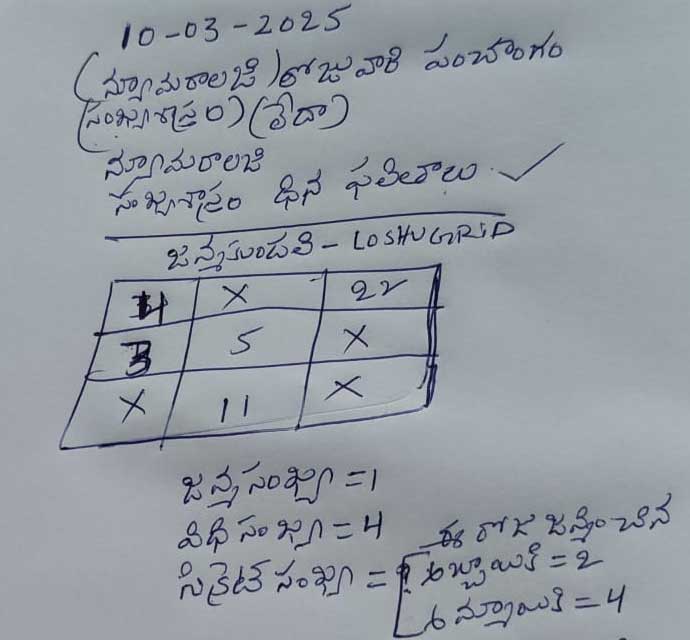 10-03-2025
(న్యూమరాలజి) రోజువారి పంచాంగం
(సంఖ్యాశాస్త్రం) (లేదా)
న్యూమరాలజి
సంఖ్యాశాస్త్రం దిన ఫలితాలు. ✓
జన్మకుండలి - LOSHUGRID
4 X 22
3 5 X
X 11 X
జన్మసంఖ్యా = 1
విధి సంఖ్యా = 4
ఈ రోజు జన్మించిన
సీక్రెట్ సంఖ్యా = [అబ్బాయికి = 2
అమ్మాయికి = 4